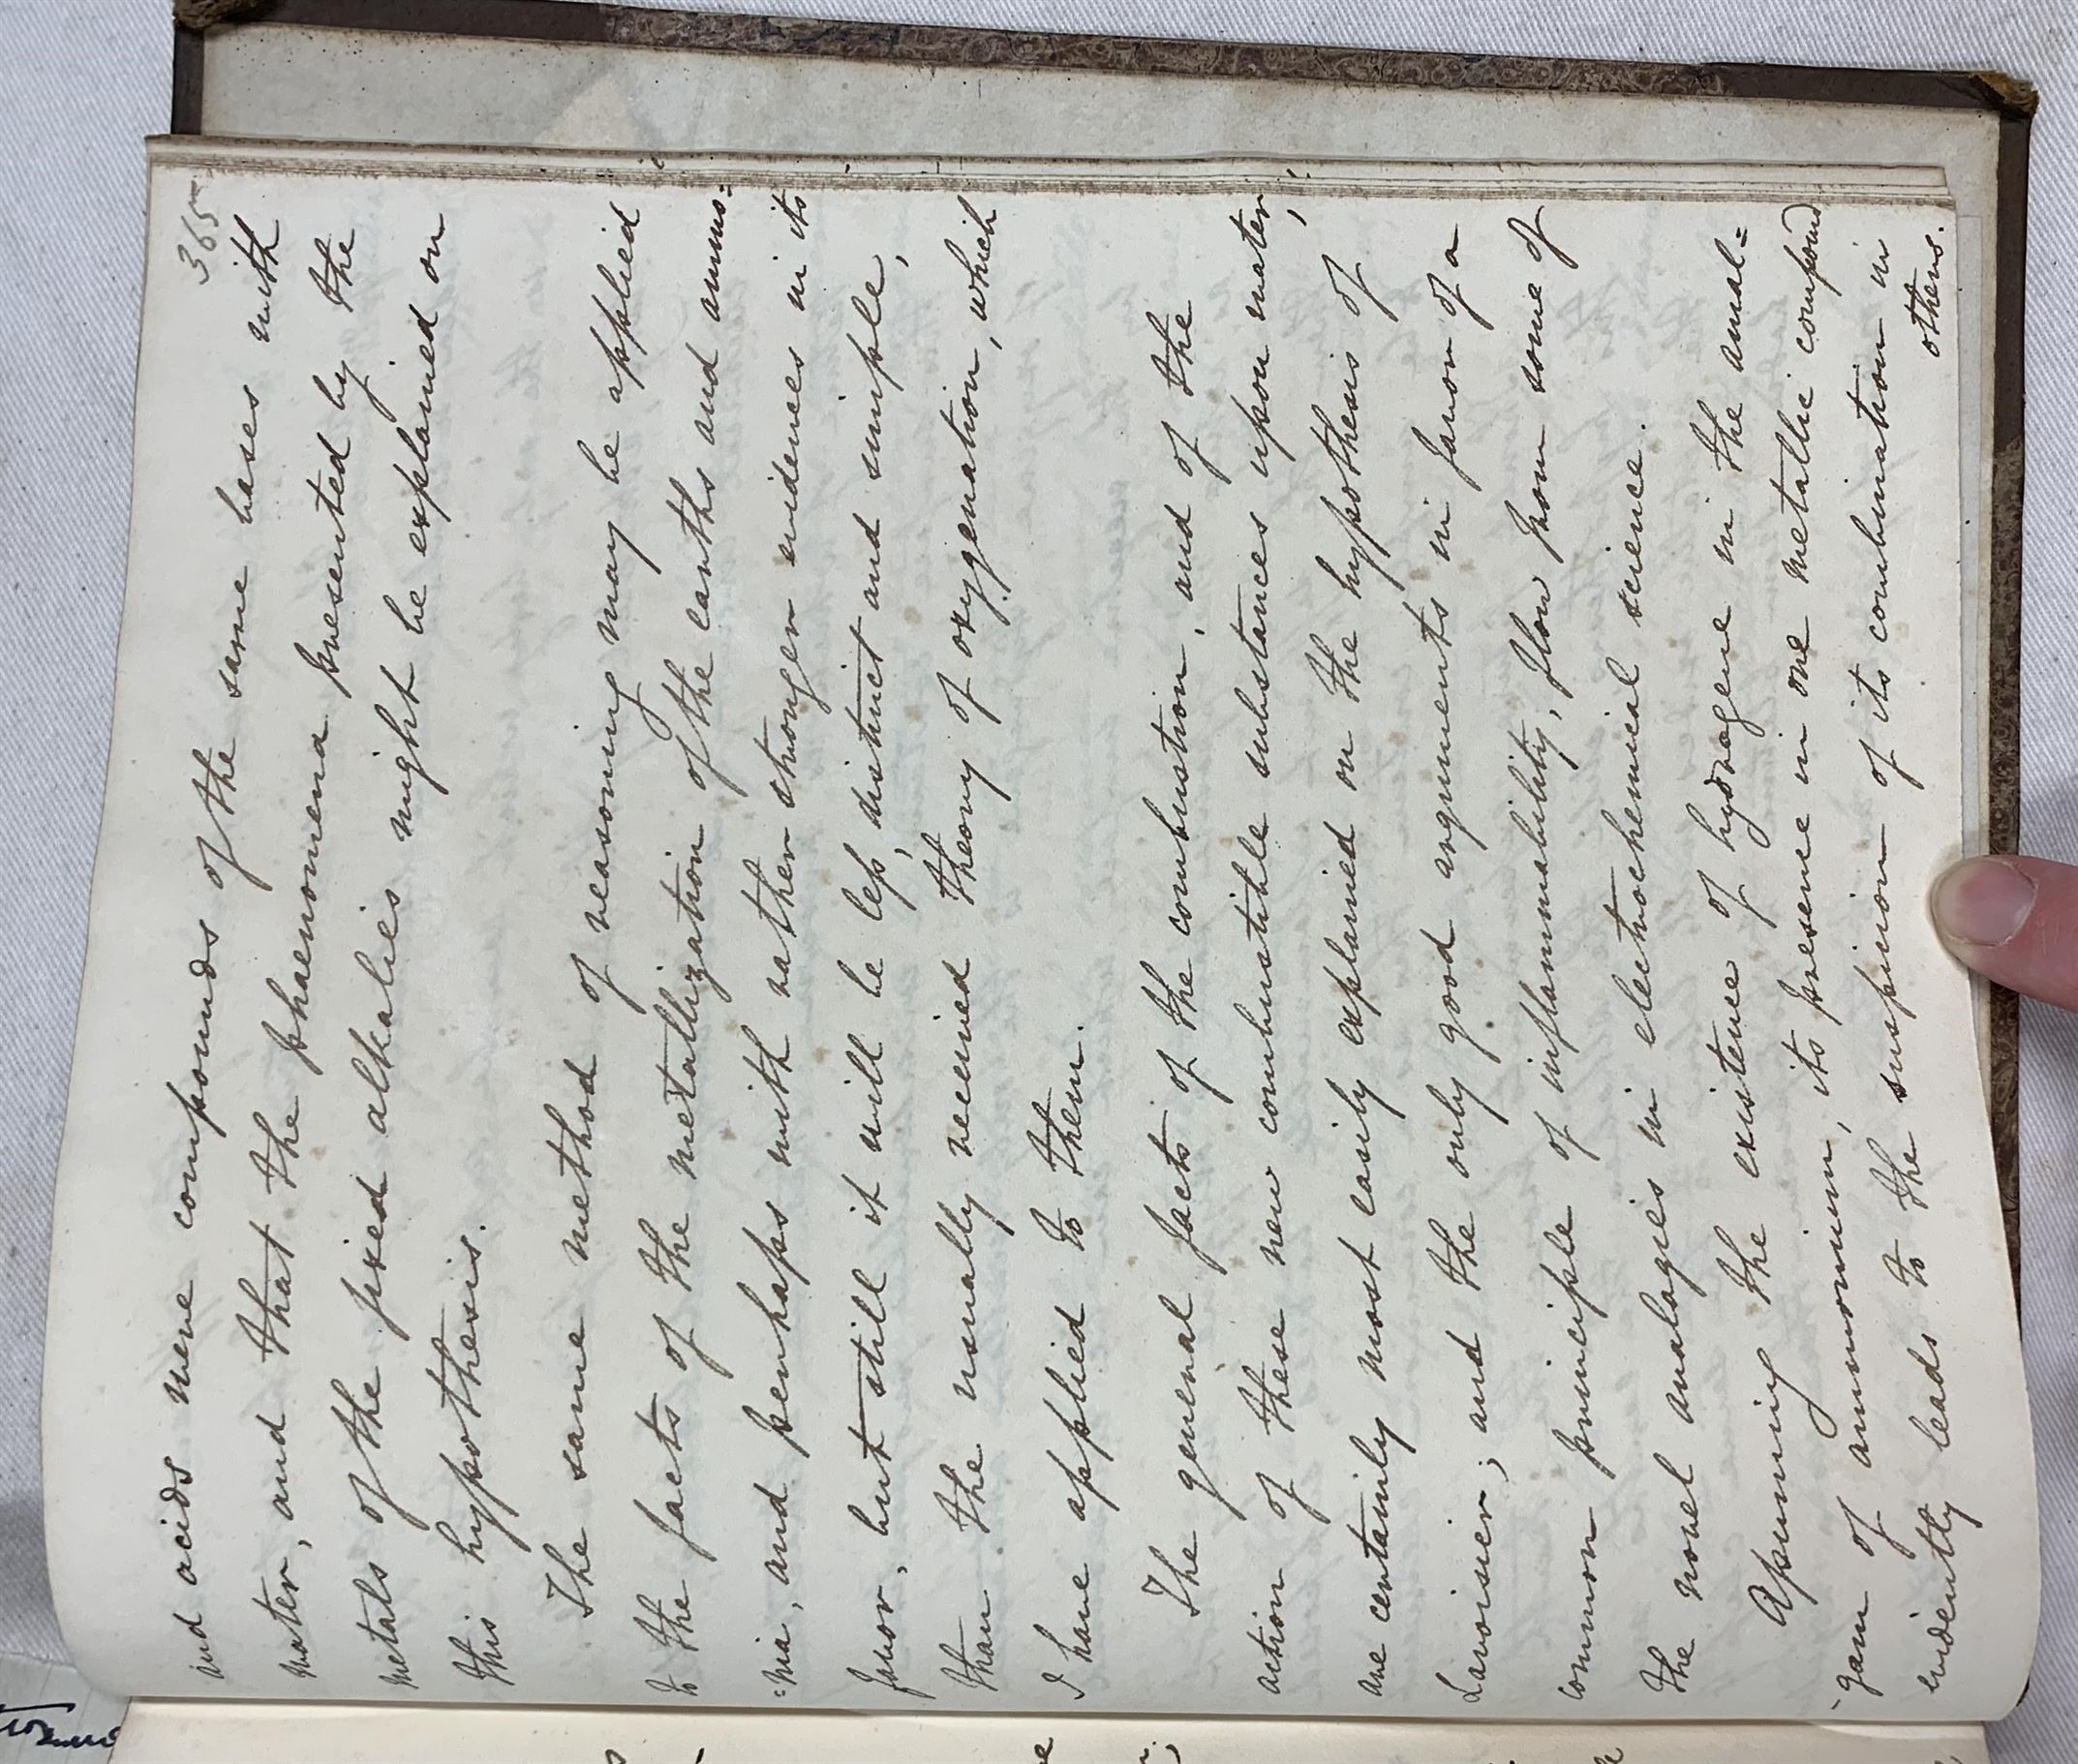 365
and acids were compounds of the same bases with
water, and that the phaenomena presented by the
metals of the fixed alkalies might be explained on
this hypothesis.
The same method of reasoning may be applied
to the facts of the metallization of the earths and ammo=
=nia, and perhaps with rather stronger evidences in its
favor, but still it will be less, distinct and simple,
than the usually received theory of oxygenation, which
I have applied to them.
The general facts of the combustion, and of the
action of these new combustible substances upon water,
are certainly most easily explained on the hypothesis of
Lavoisier; and the only good arguments in favor of a
common principle of inflammability, flow from some of
the novel analogies in electrochemical science.
Assuming the existence of hydrogene in the amal=
gam of ammonium, its presence in one metallic compound
evidently leads to the suspicion of its combination in
others.